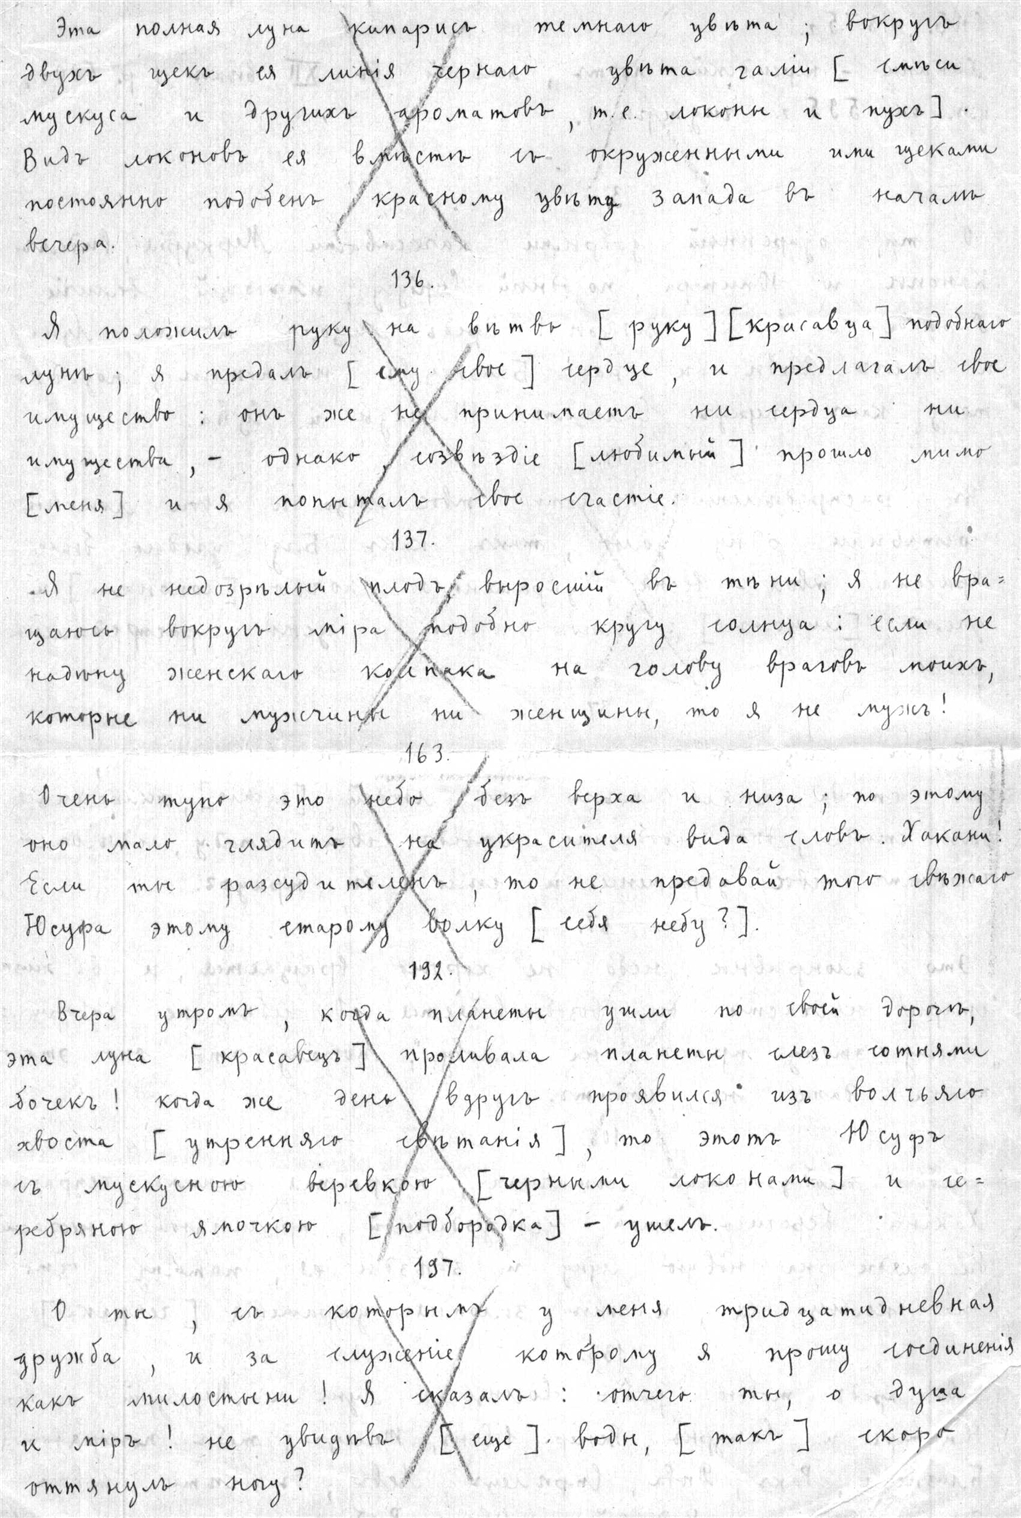 Эта полная луна кипарисъ темнаго цвѣта; вокругъ
двухъ щекъ ея линія чернаго цвѣта галіи [ смѣси
мускуса и другихъ ароматовъ, т.е. локоны и пухъ].
Видъ локоновъ ея вмѣстѣ съ окруженными ими щеками
постоянно подобенъ красному цвѣту запада въ началѣ
вечера.
136.
Я положилъ руку на вѣтвь [ руку ] [красавца] подобнаго
лунѣ; я предалъ [ ему свое ] сердце, и предлагалъ свое
имущество: онъ же не принимаетъ ни сердца ни
имущества, – однако, созвѣздіе [любимый] прошло мимо
[меня] и я попыталъ свое счастіе.
137.
Я не недозрѣлый плодъ, выросшій въ тѣни; я не вра=
щаюсь вокругъ міра подобно кругу солнца: если не
надѣну женскаго колпака на голову враговъ моихъ,
которые ни мужчины ни женщины, то я не мужъ!
163.
Очень тупо это небо безъ верха и низа; по этому
оно мало глядитъ на украсителя вида словъ. Хакани!
Если ты разсудителенъ, то не предавай того свѣжаго
Юсуфа этому старому волку [ себя небу?].
192.
Вчера утромъ, когда планеты ушли по своей дорогѣ,
эта луна [ красавецъ ] проливала планеты слезъ сотнями
бочекъ! когда же день вдругъ проявился изъ волчьяго
хвоста [ утренняго свѣтанія], то этотъ Юсуфъ
съ мускусною веревкою [черными локонами] и се=
ребряною ямочкою [подбородка] – ушелъ.
197.
О ты, съ которымъ у меня тридцатидневная
дружба, и за служеніе которому я прошу соединенія
какъ милостыни! Я сказалъ: отчего ты, о душа
и міръ! не увидѣвъ [ еще ] воды, [ такъ ] скоро
оттянулъ ногу?